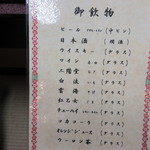 御飲物
ビール (中ビン)
日本酒 (燗酒)
ウイスキー (グラス)
ワイン (グラス)
二階堂 (グラス)
白波 (グラス)
雲海 (グラス)
紅乙女 (グラス)
チューハイ (グラス)
コカコーラ (グラス)
オレンジジュース (グラス)
ウーロン茶 (グラス)